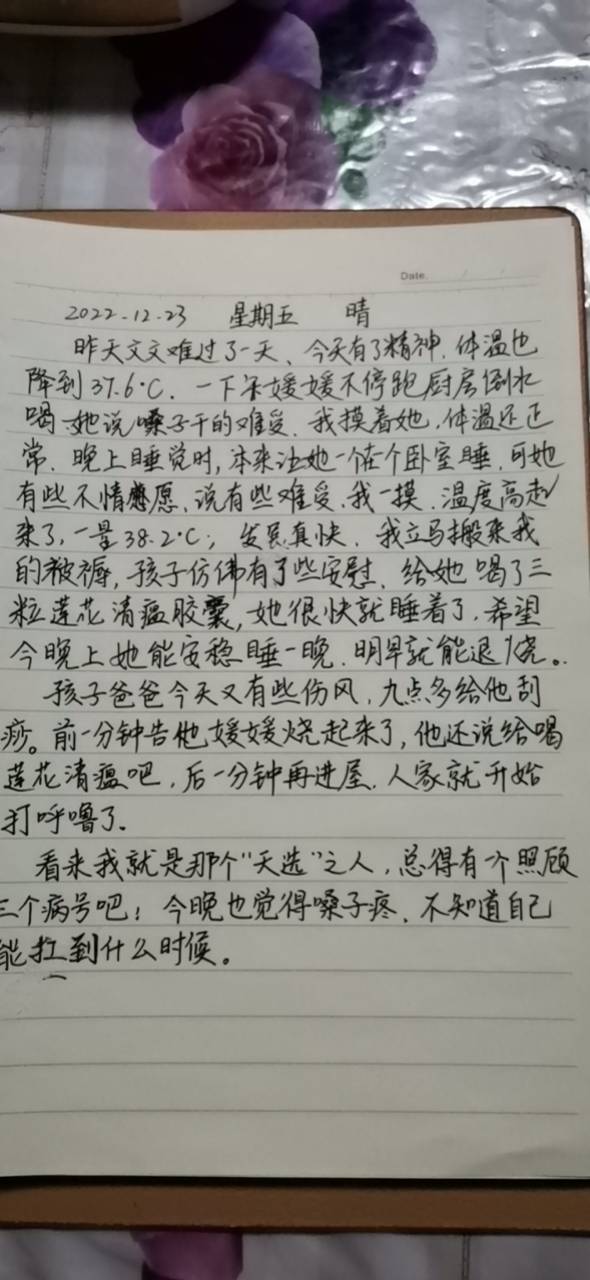 Date.
2022.12.23 星期五 晴
昨天文文难过了一天、今天有了精神.体温也
降到37.6°C.一下午媛媛不停跑厨房倒水
喝.她说嗓子干的难受.我摸着她,体温还正
常.晚上睡觉时,本来让她一个在个卧室睡.可她
有些不情愿、说有些难受.我一摸.温度高起
来了,一量38.2°C;发展真快.我立马搬来我
的被褥,孩子仿佛有了些安慰.给她喝了三
粒莲花清瘟胶囊,她很快就睡着了.希望
今晚上她能安稳睡一晚.明早就能退烧。
孩子爸爸今天又有些伤风,九点多给他刮
痧。前一分钟告他媛媛烧起来了,他还说给喝
莲花清瘟吧,后一分钟再进屋.人家就开始
打呼噜了.
看来我就是那个"天选"之人,总得有个照顾
三个病号吧!今晚也觉得嗓子疼.不知道自己
能扛到什么时候。